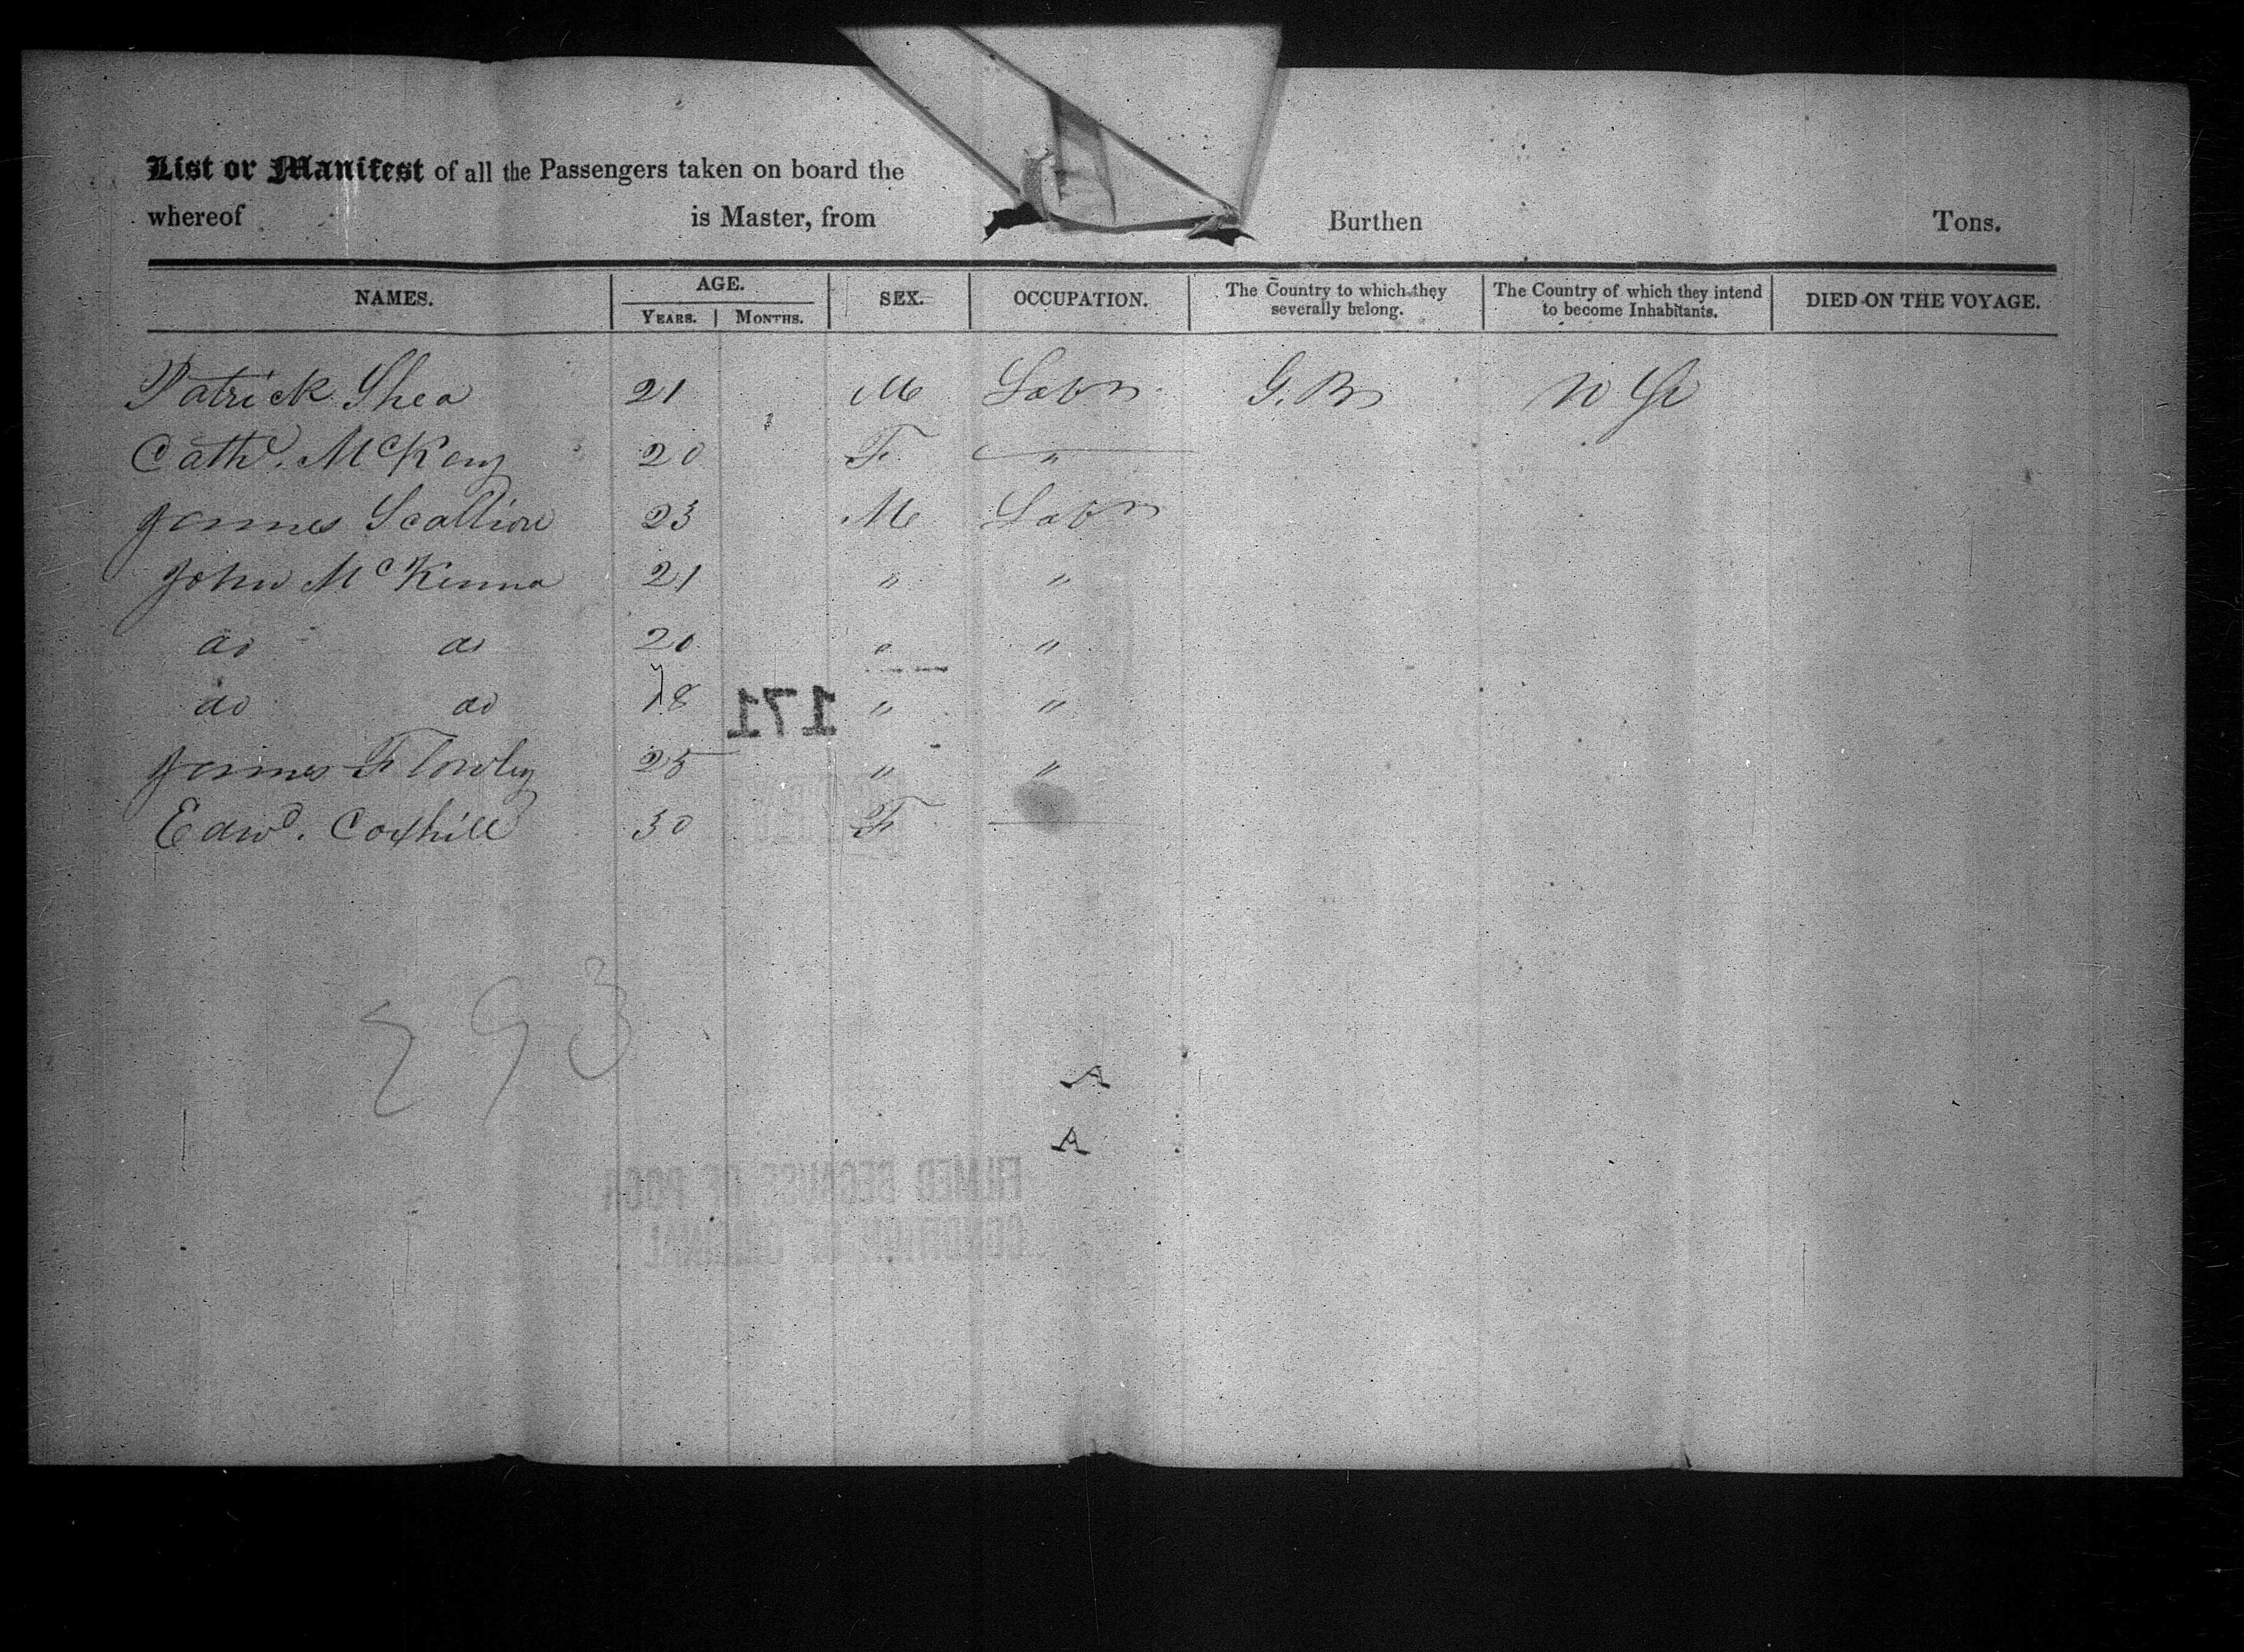 List or Manifest of all the Passengers taken on board the
whereof is Master, from Burthen Tons.
NAMES. AGE. YEARS. MONTHS. SEX. OCCUPATION. The Country to which they severally belong. The Country of which they intend to become Inhabitants. DIED ON THE VOYAGE.
Patrick Shea 21 M Labr G. B N Y
Cath. McKeny 20 F "
James Scallion 23 M Labr
John McKenna 21 " "
do do 20 " "
do do 18 " "
171
James Flowley 25 " "
Edwd. Coxhill 30 F
293
A
A
FILMED BECAUSE OF POOR
CONDITION OF ORIGINAL